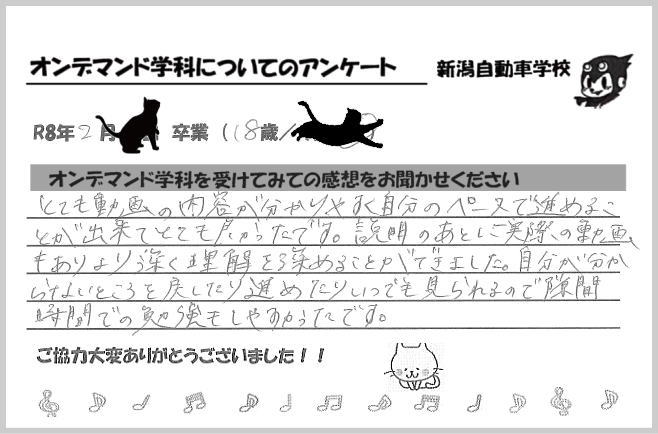 オンデマンド学科についてのアンケート
新潟自動車学校
R8年2月 卒業（18歳／
オンデマンド学科を受けてみての感想をお聞かせください
とても動画の内容が分かりやすく自分のペースで進めるこ
とが出来てとても良かったです。説明のあとに実際の動画
もありより深く理解を深めることができました。自分が分か
らないところを戻したり進めたりいつでも見られるので隙間
時間での勉強もしやすかったです。
ご協力大変ありがとうございました！！